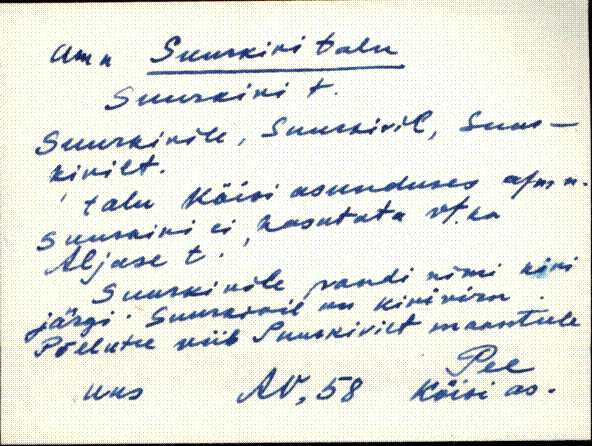 Amn Suurkivi talu
Suurkivi t.
Suurkivile, Suurkivil, Suur-
kivilt.
talu Köisi asunduses afm n.
Suurkivi ei kasutata vt. ka
Aljase t.
Suurkivile pandi nimi kivi
järgi. Suurkivil on kivivirn.
Põllutee viib Suurkivilt maanteele
uus AV, 58 Pee
Köisi as.